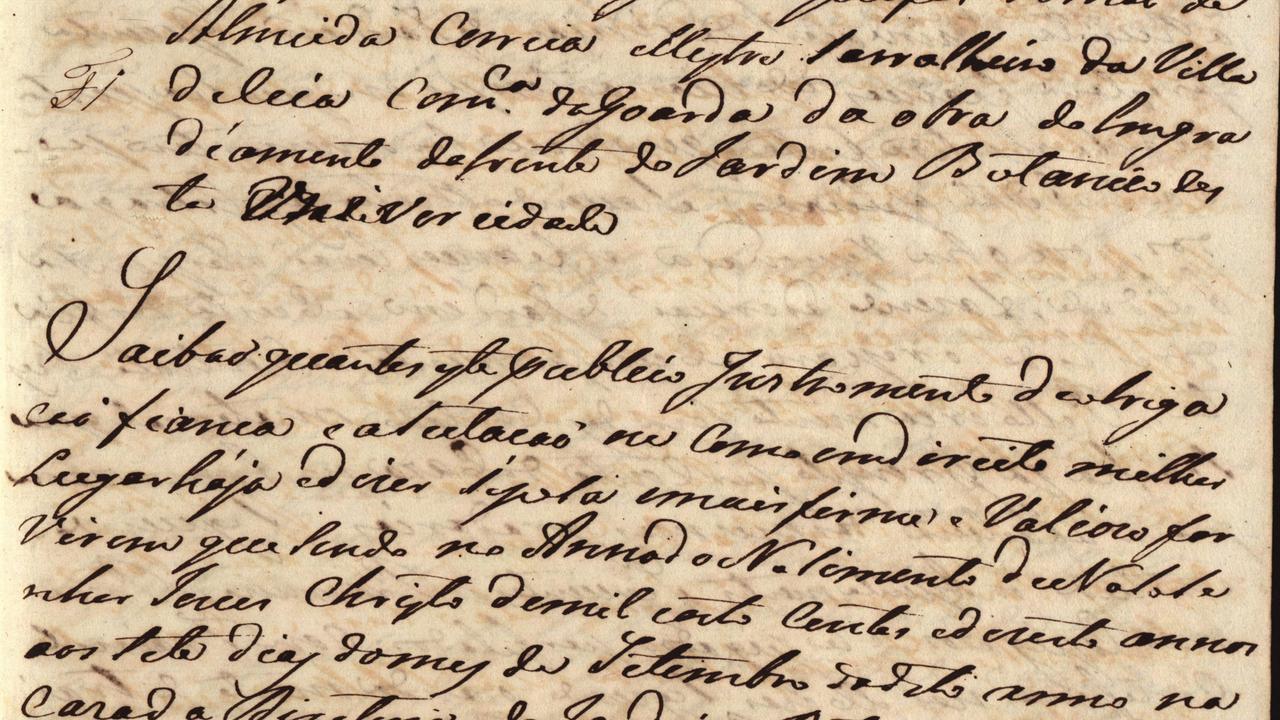 Almeida Correia Mestre serralheiro da Villa
F1 de Ceia Com.ca da Goarda da obra do Imgra
diamento da frente do Jardim Botanico des
ta Univercidade
Saibaõ quantos este publico Instromento de obriga
caõ fianca e atestacaõ ou como em direito milhor
Lugar haja e dizer se posa e mais firme e Valiozo for
Virem que sendo no Anno do Nacimento de Noso Se
nhor Jezus Christo de mil oito centos e dezoito annos
aos sete dias do mes de Setembro do dito anno na
Caza da